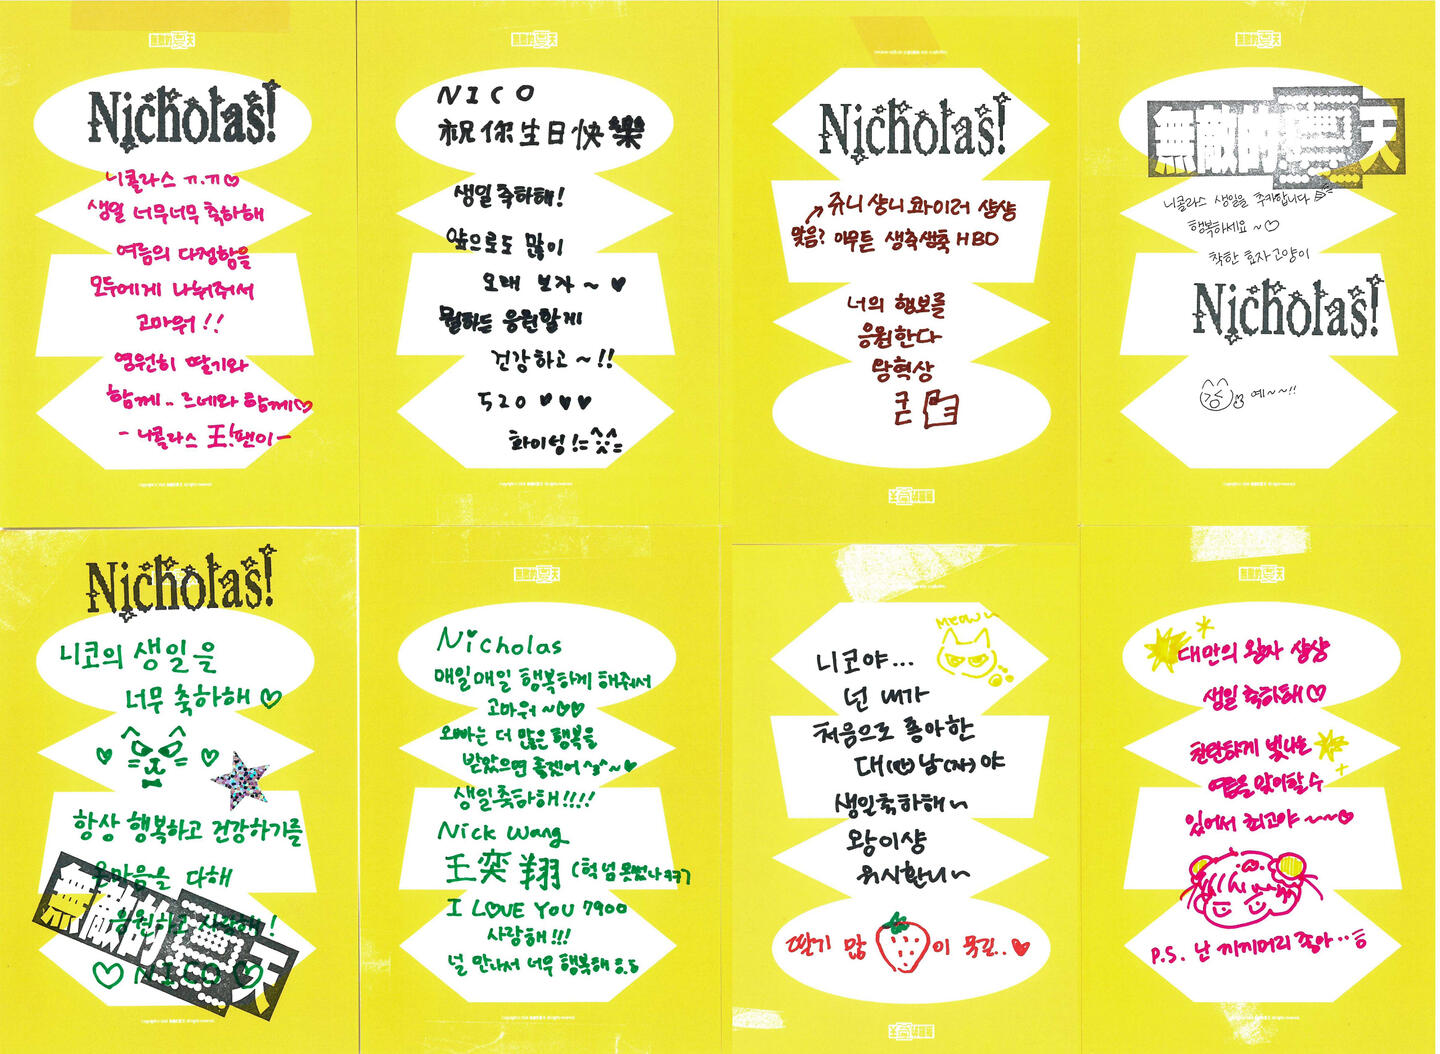 Nicholas!
니콜라스 ㅠ.ㅠ♡
생일 너무너무 축하해
여름의 다정함을
모두에게 나눠줘서
고마워!!
영원히 딸기와
함께.. 르네와 함께♡
- 니콜라스 王!팬이 -
NICO
祝你生日快樂
생일 축하해!
앞으로도 많이
오래 보자~ ♥
뭘하든 응원할게
건강하고~!!
520 ♥♥♥
화이팅!
Nicholas!
쥬니 샹니 콰이러 샹샹
맞음? 아무튼 생축생축 HBD
너의 행보를
응원한다
왕혁상
굳
無敵的夏天
니콜라스 생일을 추카합니다
행복하세요~♡
착한 효자고양이
Nicholas!
예~~!!
Nicholas!
니코의 생일을
너무 축하해 ♡
항상 행복하고 건강하기를
온마음을 다해
응원하고 사랑해!
♡ NICO ♡
無敵的夏天
Nicholas
매일매일 행복하게 해줘서
고마워~♡♡
오빠는 더 많은 행복을
받았으면 좋겠어 ^3^~♡
생일축하해!!!!
Nick Wang
王奕翔 (헉 넘 못썼나ㅋㅋㄱ
I LOVE YOU 7900
사랑해!!!
널 만나서 너무 행복해
meow~
니코야...
넌 내가
처음으로 좋아한
대(만)남(자)야
생일축하해~
왕이샹
워시환니~
딸기 많이 묵길..♥
대만의 왕자 샹샹
생일 축하해♡
찬란하게 빛나는
여름을 맞이할 수
있어서 최고야~~♡
P.S. 난 끼끼머리 좋아..ㅎ